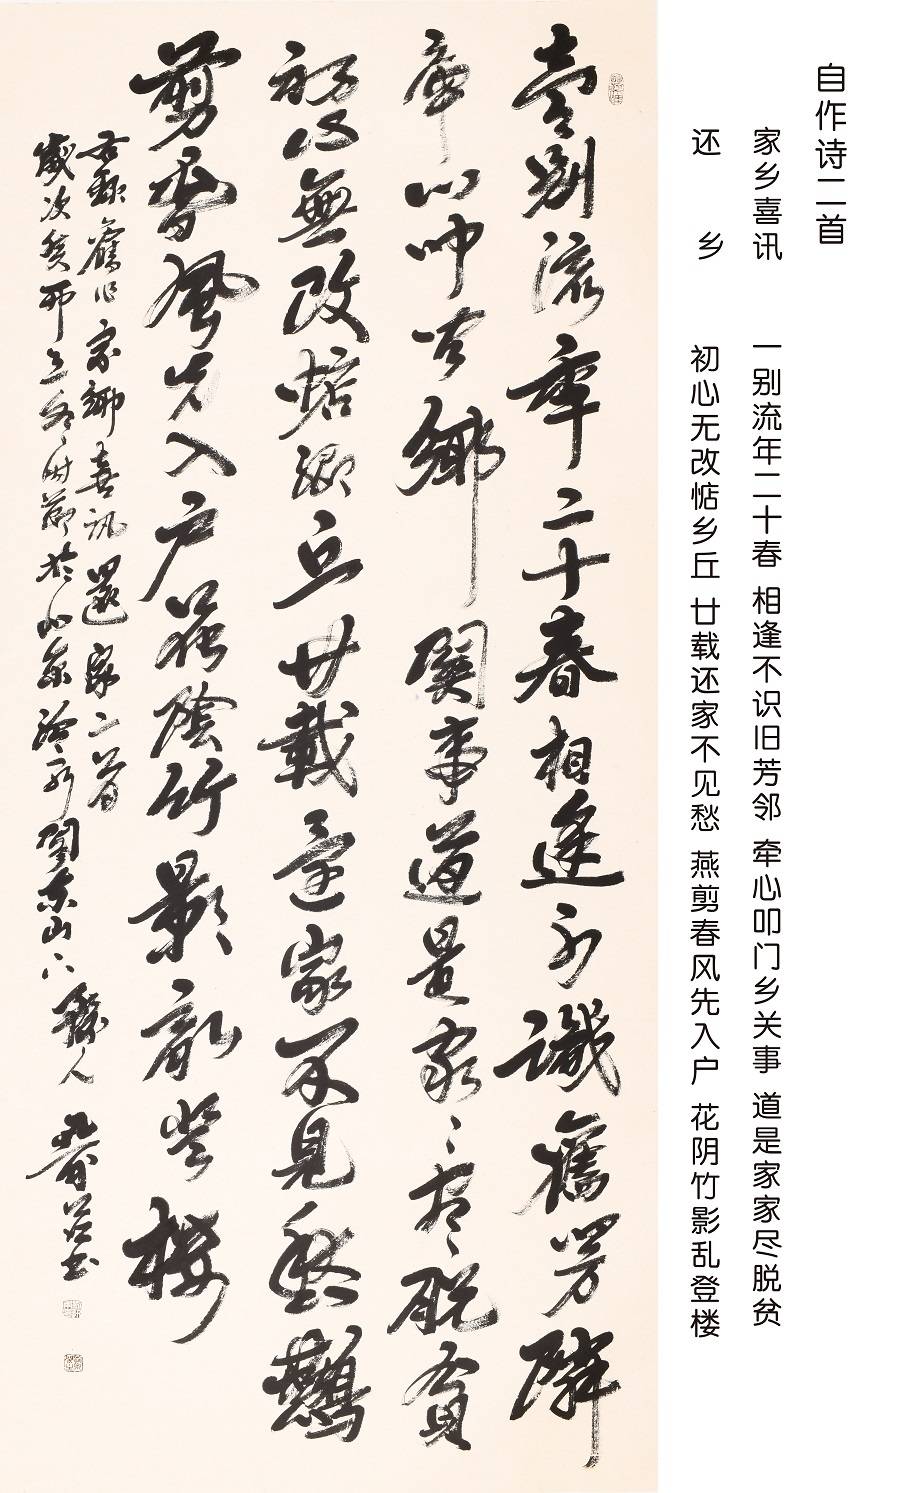 自作诗二首
家乡喜讯 一别流年二十春 相逢不识旧芳邻 牵心叩门乡关事 道是家家尽脱贫
还 乡 初心无改惦乡丘 廿载还家不见愁 燕剪春风先入户 花阴竹影乱登楼
壹别流年二十春相逢不識舊芳隣
牵心叩门鄉関事道是家々尽脱貧
初心無改惦鄉丘廿載還家不見愁鷰
剪春風先入户花陰竹影乱登樓
右録舊作家鄉喜讯還家二首
歲次癸卯之冬 於北京 関东山下 人 書